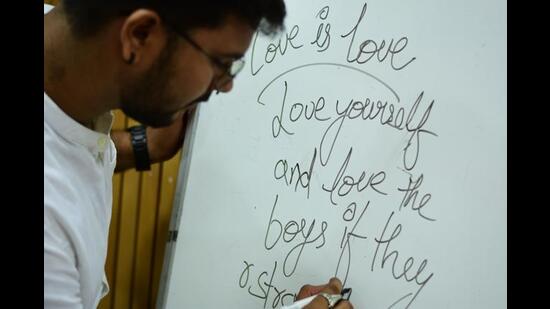 Love is love
Love yourself
and love the
boys if they